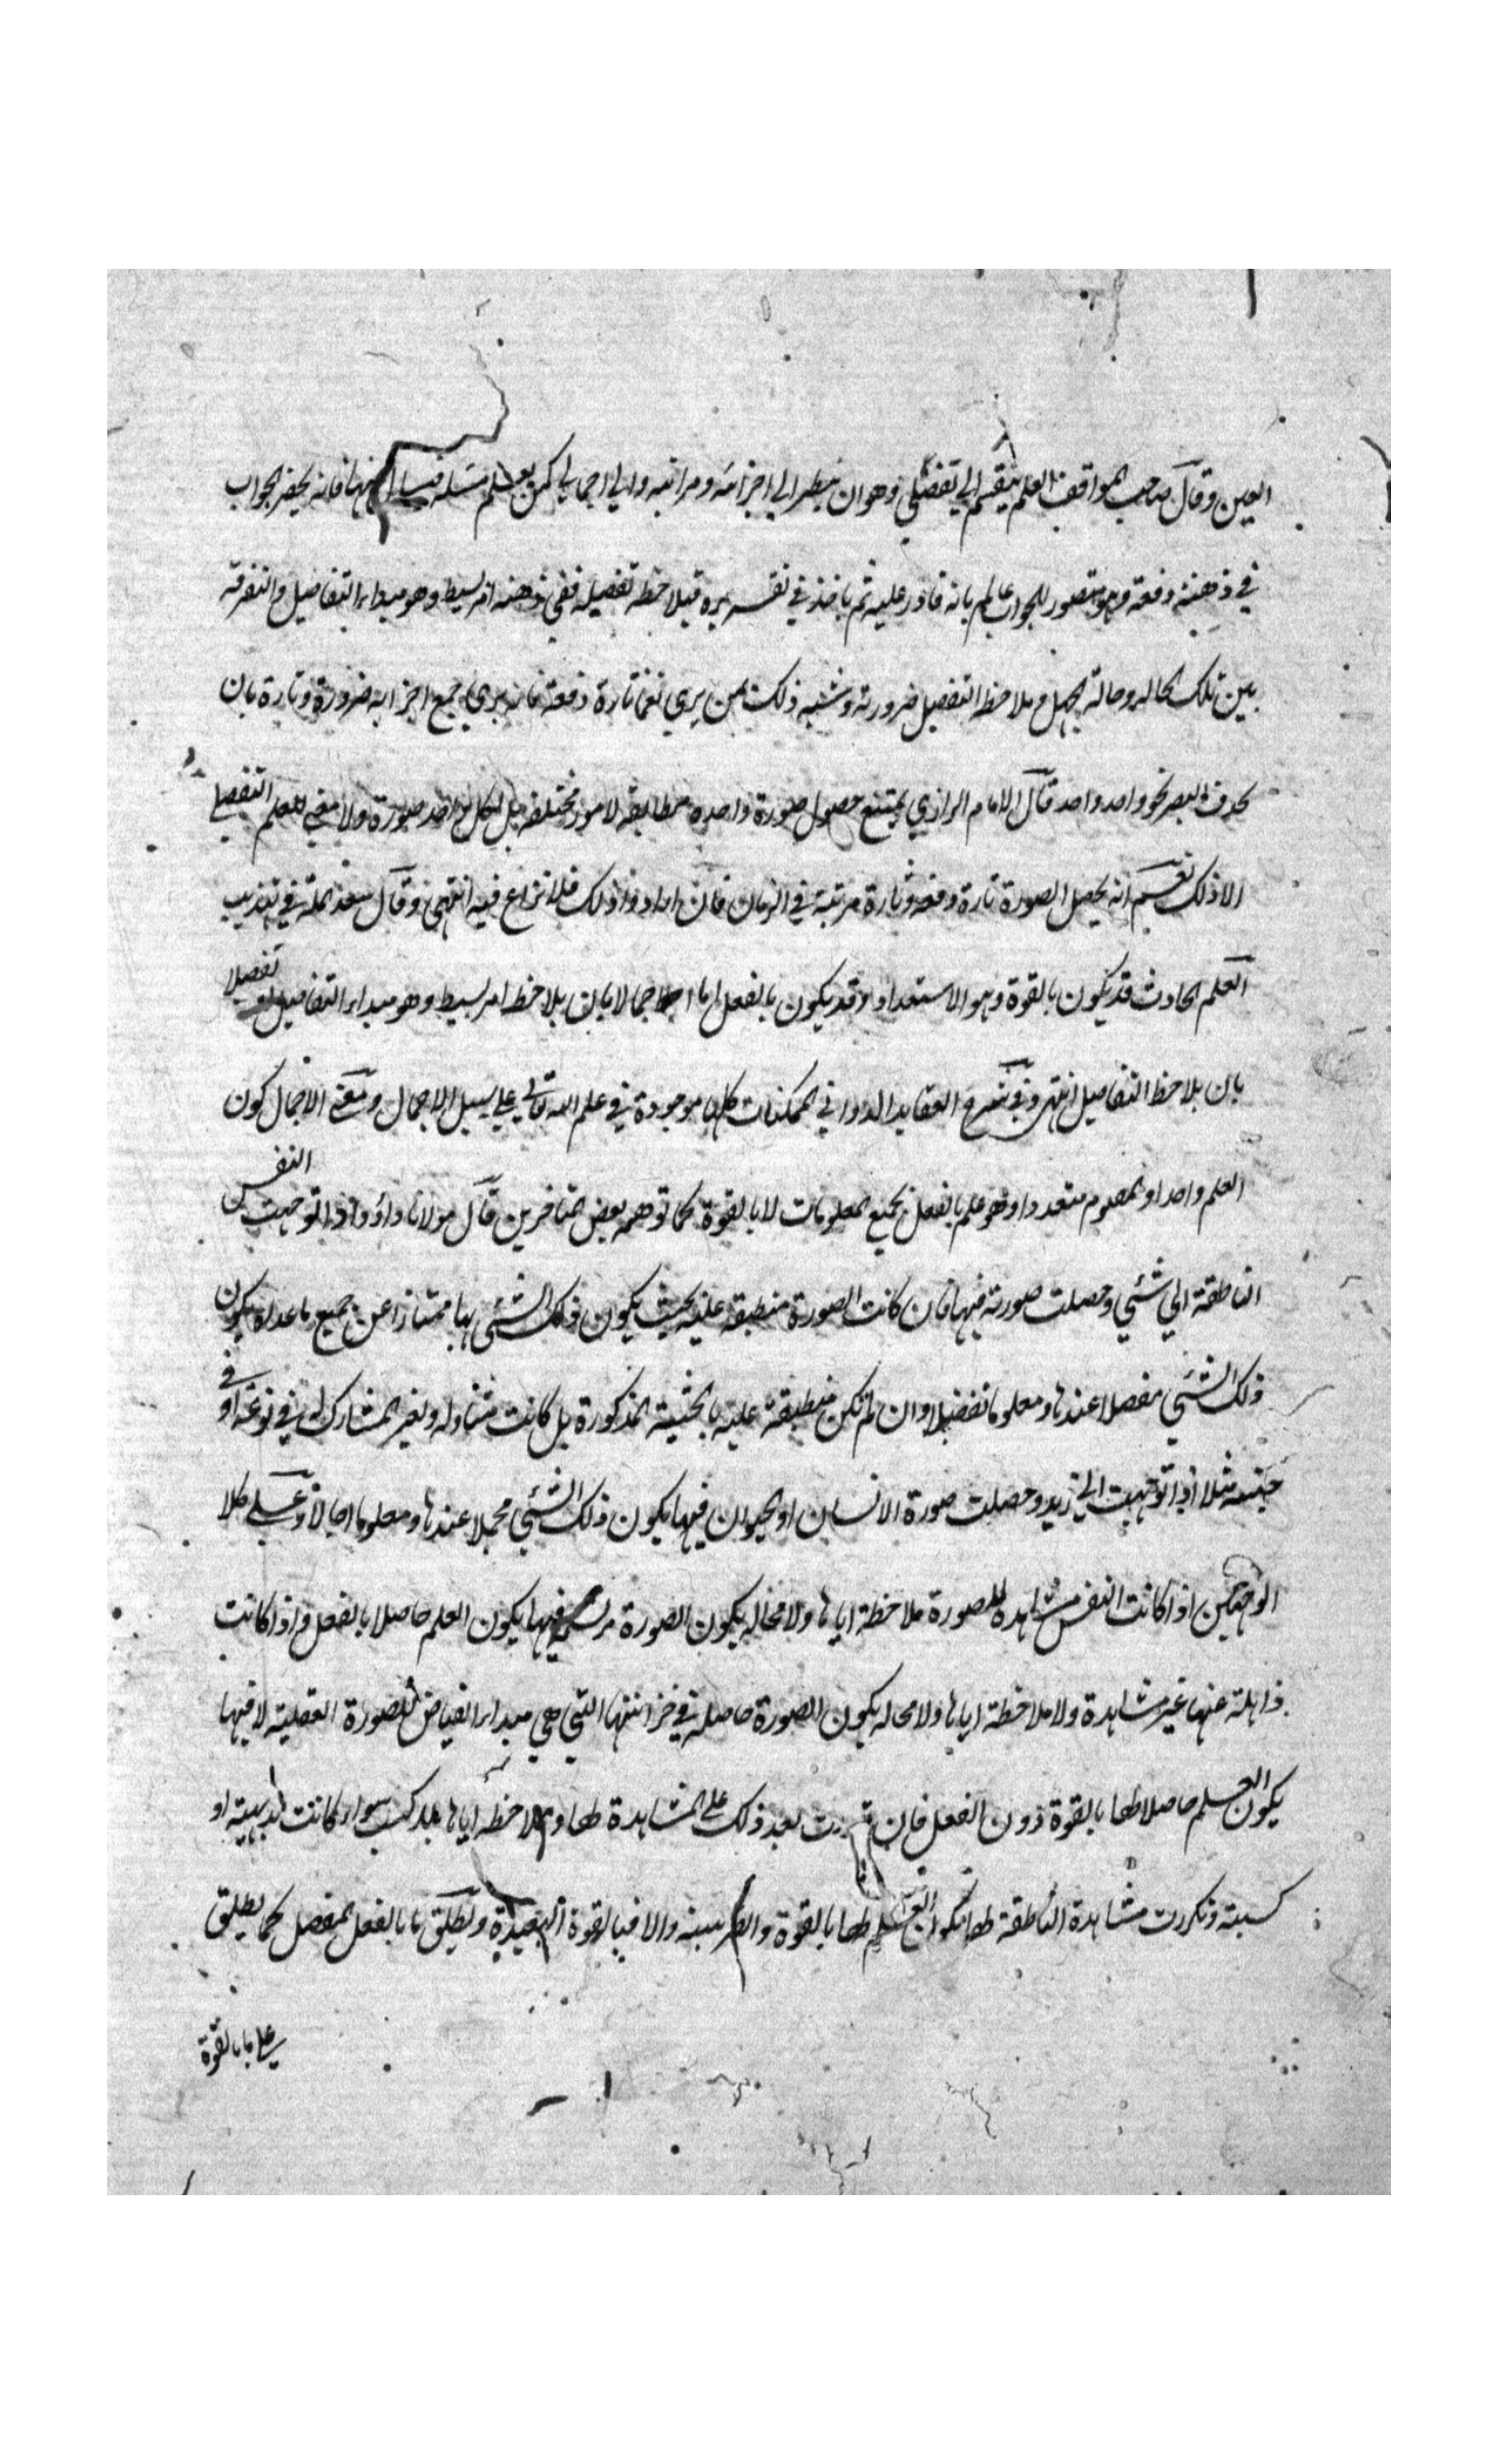 العين وقال صاحب المواقف العلم ينقسم الي تفصيلي وهو ان ينظر الي اجزائه ومراتبه والي اجمالي كمن يعلم مسئلة فيسال عنها فانه يحضر الجواب
في ذهنه دفعة وهو متصور للجواب عالم بانه قادر عليه ثم ياخذ في تقريره فيلاحظ تفصيله ففي ذهنه امر بسيط وهو مبداء التفاصيل والتفرقة
بين تلك الحالة وحالة الجهل وملاحظة التفصيل ضرورية وشبه ذلك بمن يري نعما تارة دفعة فانه يري جميع اجزائه ضرورة وتارة بان
يحدق البصر نحو واحد واحد قال الامام الرازي يمتنع حصول صورة واحدة مطابقة لامور مختلفة بل لكل واحد صورة ولا معني للعلم التفصيلي
الا ذلك نعم انه يحصل الصورة تارة دفعة وتارة مرتبة في الزمان فان ارادوا ذلك فلا نزاع فيه انتهي وقال سعد الملة في تهذيب
العلم الحادث قد يكون بالقوة وهو الاستعداد وقد يكون بالفعل اما اجمالا بان يلاحظ امر بسيط وهو مبداء التفاصيل او تفصيلا
بان يلاحظ التفاصيل انتهي وفي شرح العقايد الدواني الممكنات كلها موجودة في علم الله تعالي علي سبيل الاجمال ومعني الاجمال كون
العلم واحدا والمعلوم متعددا وهو علم بالفعل بجميع المعلومات لا بالقوة كما توهمه بعض المتاخرين قال مولانا داؤد اذا توجهت النفس
الناطقة الي شئي وحصلت صورته فيها فان كانت الصورة منطبقة عليه بحيث يكون ذلك الشئي بها ممتازا عن جميع ما عداه يكون
ذلك الشئي مفصلا عندها ومعلوما تفصيلا وان لم تكن منطبقة عليه بالحيثية المذكورة بل كانت متناولة ولغير المشارك له في نوعه او في
جنسه مثلا اذا توجهت الي زيد وحصلت صورة الانسان او الحيوان فيها يكون ذلك الشئي مجملا عندها ومعلوما اجمالا وعلي كلا
الوجهين اذا كانت النفس مشاهدة للصورة ملاحظة اياها ولا محالة يكون الصورة مرتسمة فيها يكون العلم حاصلا بالفعل واذا كانت
ذاهلة عنها غير مشاهدة ولا ملاحظة اياها ولا محالة يكون الصورة حاصلة في خزانتها التي هي مبداء الفياض للصورة العقلية لا فيها
يكون العلم حاصلا لها بالقوة دون الفعل فان قدرت بعد ذلك علي المشاهدة لها وملاحظة اياها بلا كسب سواء كانت بديهية او
كسبية وتكررت مشاهدة الناطقة لها يكون العلم لها بالقوة والا فبالقوة البعيدة ويطلق ما بالفعل المفصل كما يطلق
علي ما بالقوة